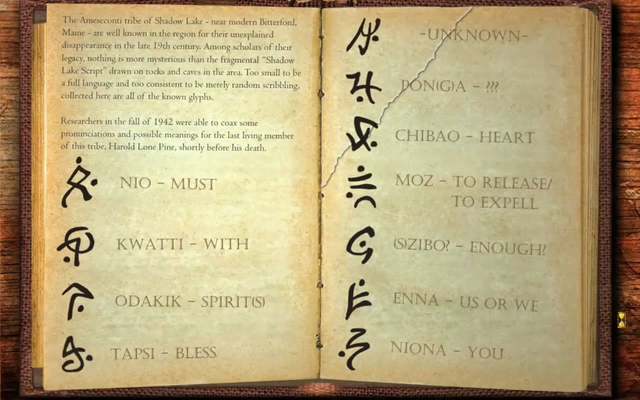 The Ameseconti tribe of Shadow Lake - near modern Bitterford,
Maine - are well known in the region for their unexplained
disappearance in the late 19th century. Among scholars of their
legacy, nothing is more mysterious than the fragmental "Shadow
Lake Script" drawn on rocks and caves in the area. Too small to be
a full language and too consistent to be merely random scribbling,
collected here are all of the known glyphs.
Researchers in the fall of 1942 were able to coax some
pronunciations and possible meanings for the last living member
of this tribe, Harold Lone Pine, shortly before his death.
NIO - MUST
KWATTI - WITH
ODAKIK - SPIRIT(S)
TAPSI - BLESS
-UNKNOWN-
PON(G)A - ???
CHIBAO - HEART
MOZ - TO RELEASE/
TO EXPELL
(S)ZIBO? - ENOUGH?
ENNA - US OR WE
NIONA - YOU